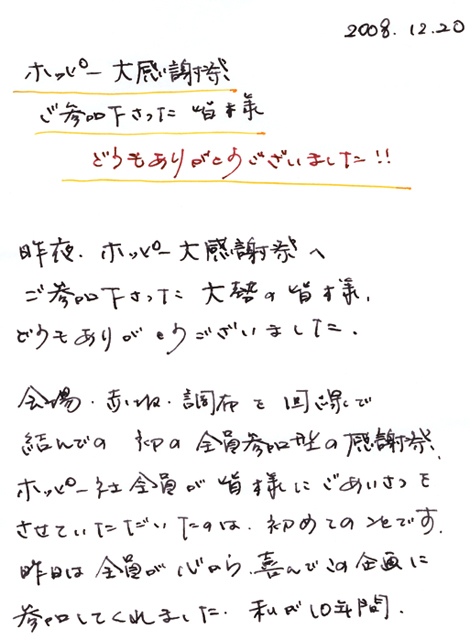 2008.12.20
ホッピー大感謝祭
ご参加下さった皆々様
どうもありがとうございました!!
昨夜、ホッピー大感謝祭へ
ご参加下さった大勢の皆々様、
どうもありがとうございました。
会場・赤坂・調布を回線で
結んでの初の全員参加型の感謝祭、
ホッピー社全員が皆様にごあいさつを
させていただいたのは、初めてのことです。
昨日は全員が心から、喜んでこの企画に
参加してくれました。私が10年間、